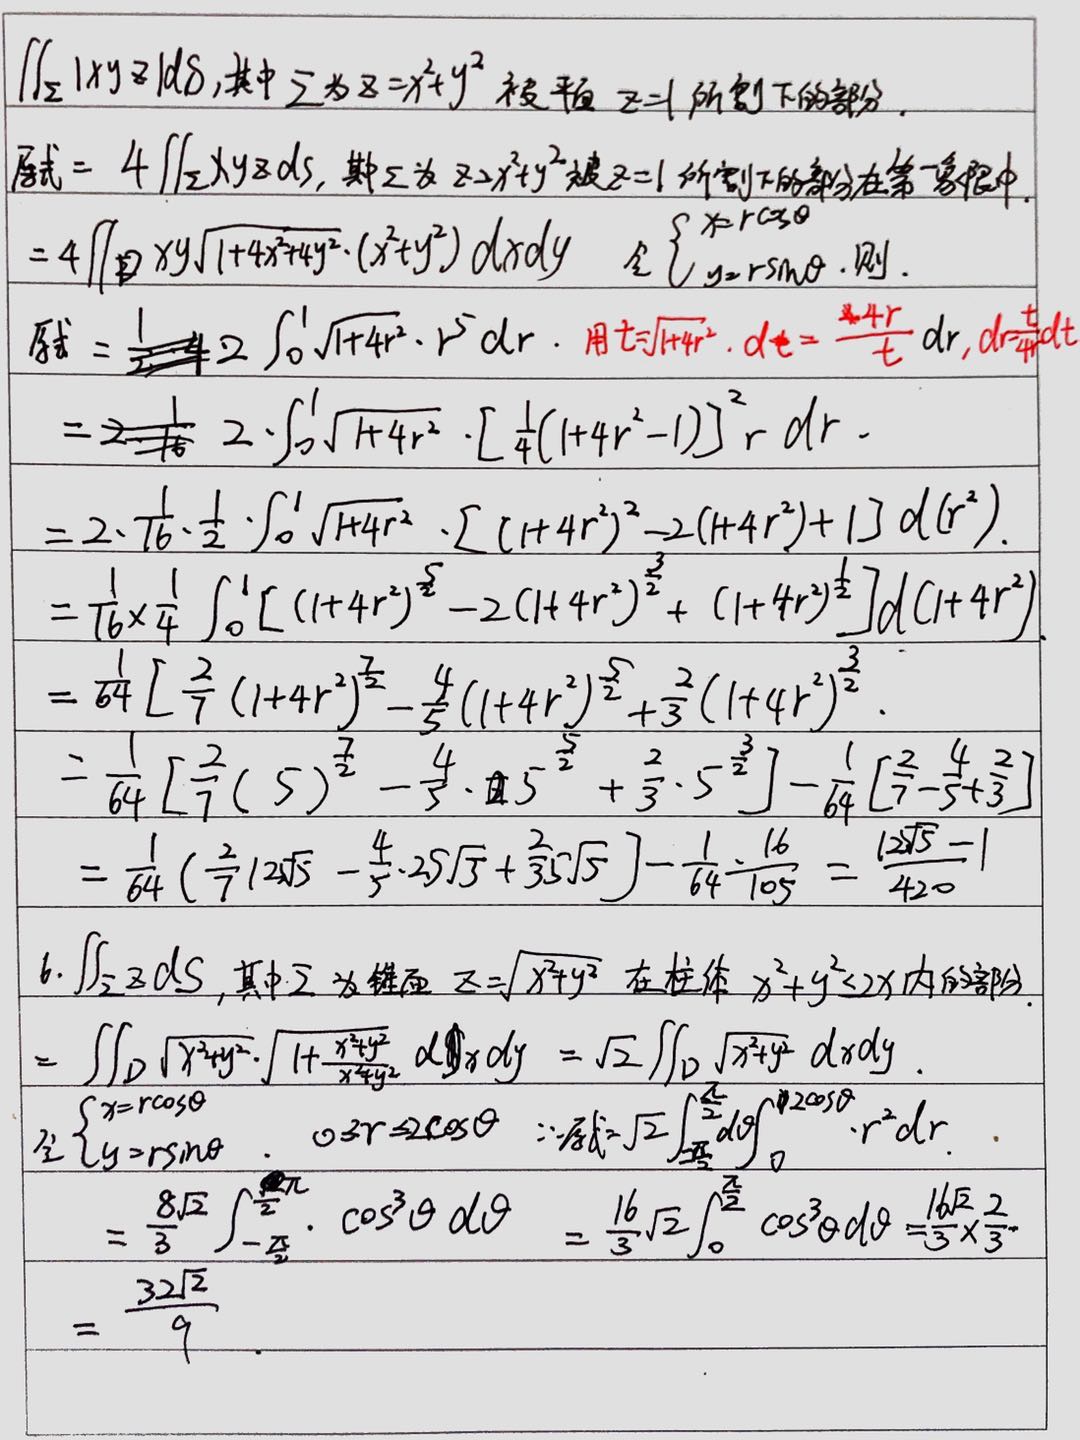 ∬_Σ |xyz|dS,其中 Σ为 z=x²+y² 被平面 z=1 所割下的部分.
原式= 4∬_Σ xyz ds, 其中Σ为 z=x²+y²被z=1所割下的部分在第一象限中.
=4∬_D xy√(1+4x²+4y²)·(x²+y²) dxdy 令 { x=rcosθ y=rsinθ .则.
原式 = 2 ∫₀¹ √(1+4r²)·r⁵ dr. 用 t=√(1+4r²). dt= 4r/t dr, dr=t/4r dt
= 2·∫₀¹ √(1+4r²)·[1/4(1+4r²-1)]² r dr.
=2·1/16·1/2·∫₀¹ √(1+4r²)·[(1+4r²)²-2(1+4r²)+1] d(r²).
=1/16×1/4 ∫₀¹ [(1+4r²)^(5/2) -2(1+4r²)^(3/2) + (1+4r²)^(1/2)]d(1+4r²).
= 1/64 [2/7 (1+4r²)^(7/2) - 4/5(1+4r²)^(5/2) + 2/3(1+4r²)^(3/2).
= 1/64 [2/7(5)^(7/2) - 4/5·5^(5/2) + 2/3·5^(3/2)] - 1/64 [2/7-4/5+2/3]
= 1/64 (2/7 125√5 - 4/5·25√5 + 2/3 5√5] - 1/64·16/105 = (125√5-1)/420
6. ∬_Σ z dS, 其中Σ 为锥面 z=√(x²+y²) 在柱体 x²+y²≤2x内的部分.
= ∬_D √(x²+y²)·√(1+(x²+y²)/(x²+y²)) dxdy = √2 ∬_D √(x²+y²) dxdy.
令 { x=rcosθ y=rsinθ . 0≤r≤2cosθ ∴原式=√2∫_(-π/2)^(π/2) dθ∫₀^(2cosθ)·r² dr.
= 8√2/3 ∫_(-π/2)^(π/2)· cos³θ dθ = 16/3 √2∫₀^(π/2) cos³θdθ = 16√2/3×2/3.
= 32√2/9.